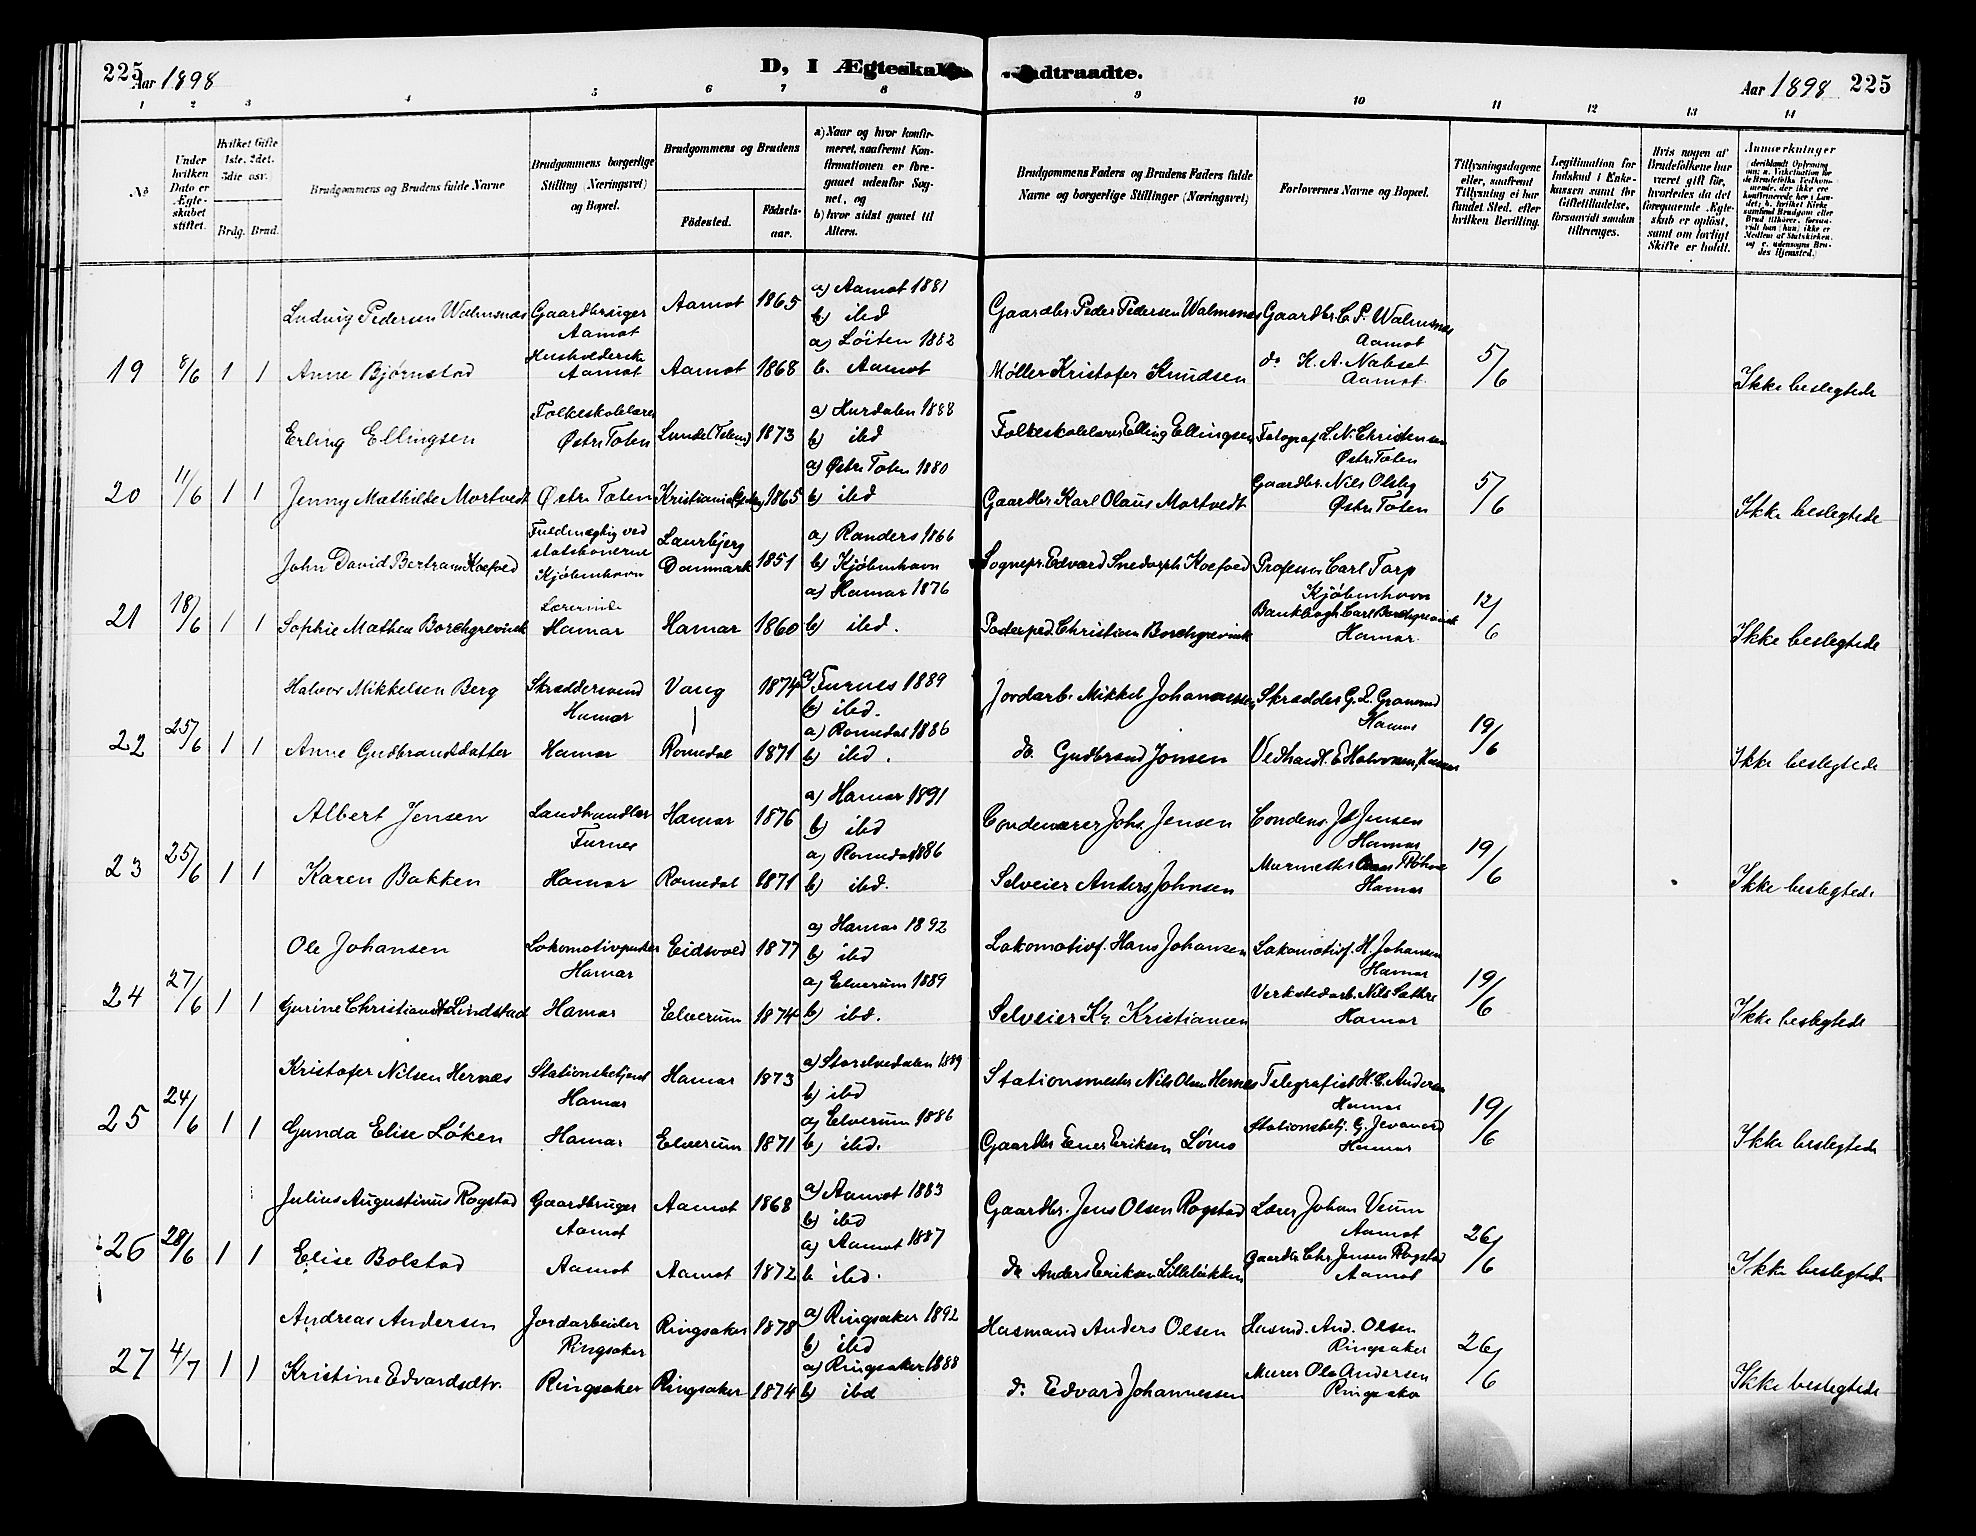 225
Aar 1898
D, I Ægteskab Indtraadte.
Aar 1898
225
1 2 3 4 5 6 7 8 9 10 11 12 13 14
No
Under hvilken Dato er Ægteskabet stiftet.
Hvilket Gifte 1ste, 2det, 3die osv.
Brdg. Brud.
Brudgommens og Brudens fulde Navne
Brudgommens borgerlige Stilling (Næringsvei) og Bopæl.
Brudgommens og Brudens
Födested.
Födselsaar.
a) Naar og hvor konfirmeret, saafremt Konfirmationen er foregaaet udenfor Sognet, og
b) hvor sidst gaaet til Alters.
Brudgommens Faders og Brudens Faders fulde Navne og borgerlige Stillinger (Næringsvei)
Forlovernes Navne og Bopæl.
Tillysningsdagene eller, saafremt Tillysning ei har fundet Sted, efter hvilken Bevilling.
Legitimation for Indskud i Enkekassen samt for Giftetilladelse, forsaavidt saadan tiltrænges.
Hvis nogen af Brudefolkene har været gift för, hvorledes da det foregaaende Ægteskab er oplöst, samt om lovligt Skifte er holdt.
Anmærkninger
Ludvig Pedersen Walmsnæs Gaardbruger Aamot Aamot 1865 a) Aamot 1881 b) ibd Gaardbr. Peder Pedersen Walmsnæs Gaardbr. C. P. Walmsnæs Aamot
19 8/6 1 1 Anne Bjørnstad Husholderske Aamot Aamot 1868 a) Løiten 1882 b. Aamot Møller Kristofer Knudsen do K. A. Nabset Aamot 5/6 Ikke beslegtede
Erling Ellingsen Folkeskolelærer Østre Toten Lunde (Telem) 1873 a) Hurdalen 1888 b) ibd Folkeskolelærer Elling Ellingsen Fotograf L. N. Christensen Østre Toten
20 11/6 1 1 Jenny Mathilde Mortvedt Østre Toten Kristiania 1865 a) Østre Toten 1880 b) ibd Gaardbr Karl Olaus Mortvedt Gaardbr. Nils Olsby Østre Toten 5/6 Ikke beslegtede
John David Bertram Koefoed Fuldmægtig ved statsbanerne Kjøbenhavn Laurbjerg Danmark 1851 a) Randers 1866 b) Kjøbenhavn Sognepr. Edvard Snedorph Koefoed Professor Carl Torp Kjøbenhavn
21 18/6 1 1 Sophie Mathea Borchgrevink Lærerinde Hamar Hamar 1860 a) Hamar 1876 b) ibd. Postexped. Christian Borchgrevink Bankbogh. Carl Borchgrevink Hamar. 12/6 Ikke beslegtede
Halvor Mikkelsen Berg Skræddersvend Hamar Vang 1874 a) Furnes 1889 b) ibd. Jordarb. Mikkel Johannessen Skrædder G. L. Granrud Hamar
22 25/6 1 1 Anne Gudbrandsdatter Hamar Romedal 1871 a) Romedal 1886 b) ibd. do. Gudbrand Jonsen Vedhandl. E. Halvorsen, Hamar 19/6 Ikke beslegtede
Albert Jensen Landhandler Furnes Hamar 1876 a) Hamar 1891 b) ibd Johs. Jensen Jensen Hamar
23 25/6 1 1 Karen Bakken Hamar Romedal 1871 a) Romedal 1886 b) ibd. Selveier Anders Johnsen Murmester Hamar 19/6 Ikke beslegtede
Ole Johansen Lokomotivpudser Hamar Eidsvold 1877 a) Hamar 1892 b) ibd Lokomotivf. Hans Johansen Lokomotivf. H. Johansen Hamar
24 27/6 1 1 Gurine Christiansd. Lindstad Hamar Elverum 1874 a) Elverum 1889 b) ibd. Selveier Kr. Kristiansen Verkstedarb. Nils Sæthre Hamar 19/6 Ikke beslegtede
Kristofer Nilsen Hernæs Stationsbetjent Hamar Hamar 1873 a) Storelvedalen 1889 b) ibd Stationsmester Nils Olsen Hernes Telegrafist H. C. Andersen Hamar
25 24/6 1 1 Gunda Elise Løken Hamar Elverum 1871 a) Elverum 1886 b) ibd. Gaardbr Ener Eriksen Stationsbetj. G. Jevanord Hamar 19/6 Ikke beslegtede
Julius Augustinus Rogstad Gaardbruger Aamot Aamot 1868 a) Aamot 1883 b) ibd Gaardbr. Jens Olsen Rogstad Lærer Johan Veum Aamot
26 28/6 1 1 Elise Bolstad Aamot Aamot 1872 a) Aamot 1887 b ibd. do Anders Eriksen Lilleløkken Gaardbr Chr. Jensen Rogstad Aamot 26/6 Ikke beslegtede
Andreas Andersen Jordarbeider Ringsaker Ringsaker 1878 a) Ringsaker 1892 b) ibd Husmand Anders Olsen Husmd. And. Olsen Ringsaker
27 4/7 1 1 Kristine Edvardsdtr. Ringsaker Ringsaker 1874 a) Ringsaker 1888 b) ibd do Edvard Johannessen Murer Ole Andersen Ringsaker 26/6 Ikke beslegtede